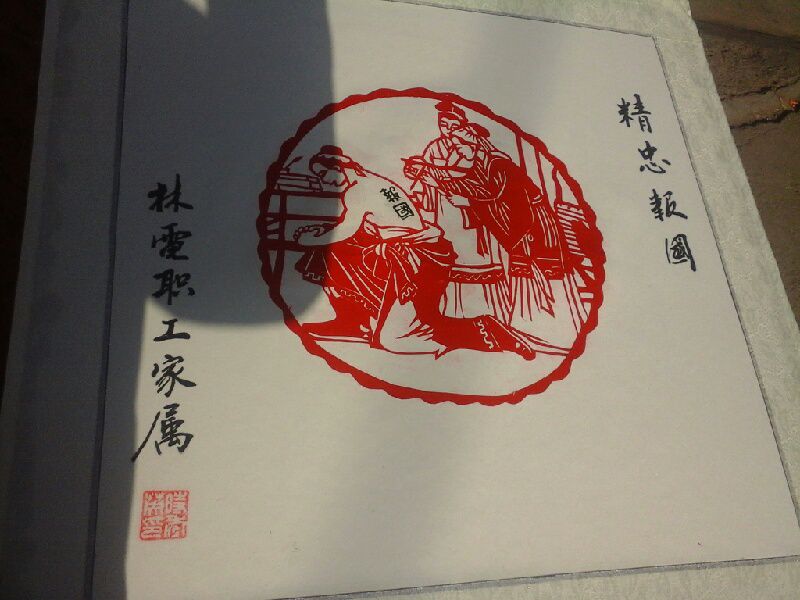 精忠報國
報國
林電职工家属